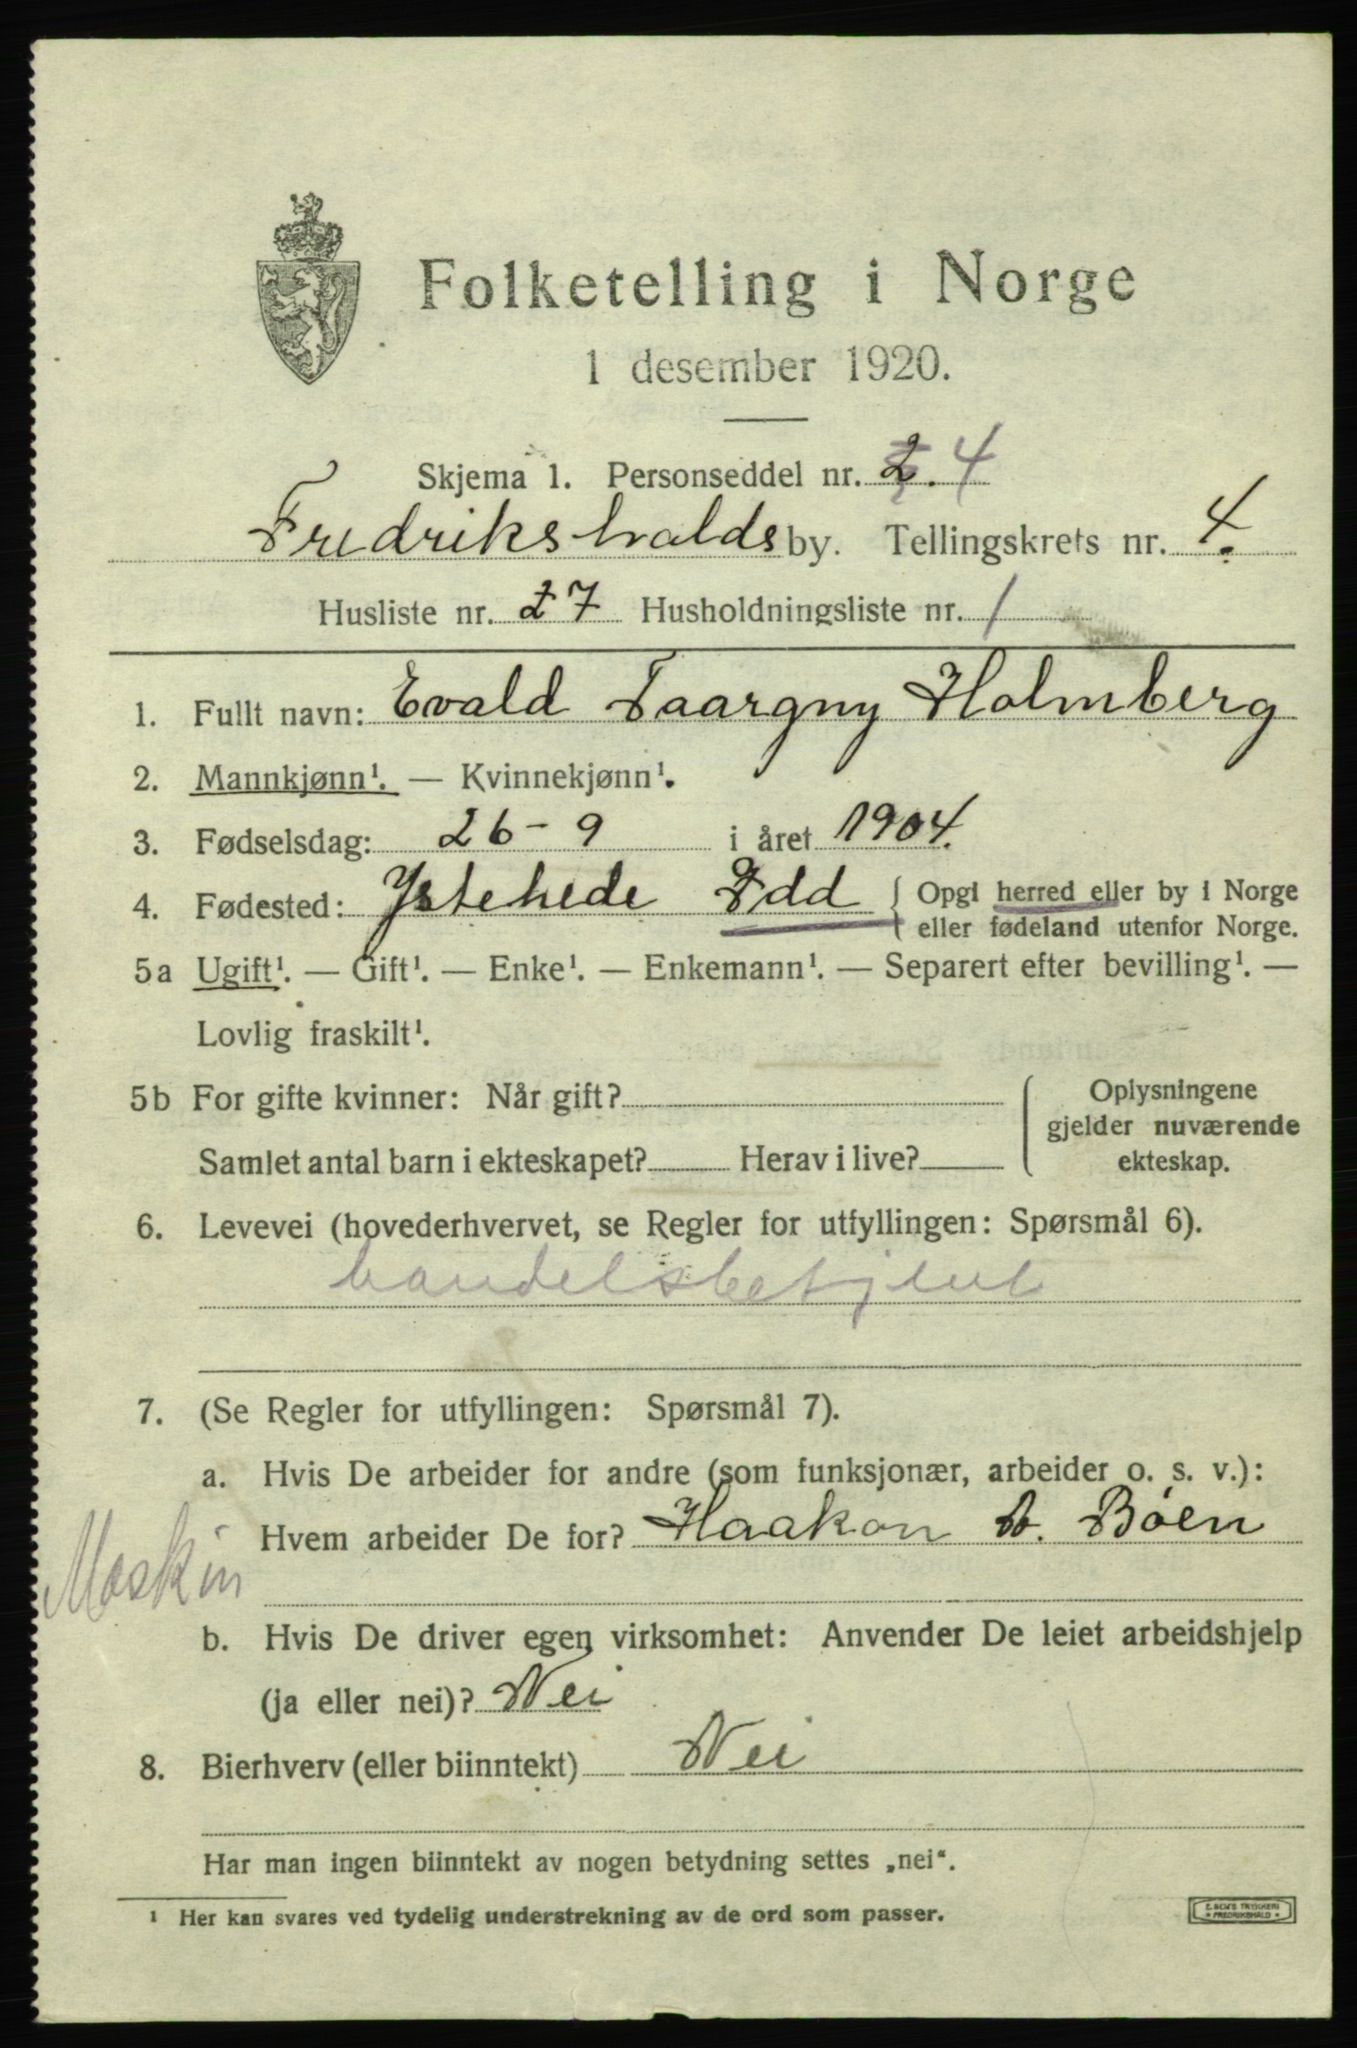 Folketelling i Norge
1 desember 1920.
Skjema 1. Personseddel nr. 2. 4
Fredrikshalds by. Tellingskrets nr. 4.
Husliste nr. 27 Husholdningsliste nr. 1
1. Fullt navn: Evald Taargny Holmberg
2. Mannkjønn¹. — Kvinnekjønn¹.
3. Fødselsdag: 26-9 i året 1904.
4. Fødested: Ystehede Idd { Opgi herred eller by i Norge
eller fødeland utenfor Norge.
5a Ugift¹. — Gift¹. — Enke¹. — Enkemann¹. — Separert efter bevilling¹. —
Lovlig fraskilt¹.
5b For gifte kvinner: Når gift?
Samlet antal barn i ekteskapet? Herav i live?
Oplysningene
gjelder nuværende
ekteskap.
6. Levevei (hovederhvervet, se Regler for utfyllingen: Spørsmål 6).
handelsbetjent
7. (Se Regler for utfyllingen: Spørsmål 7).
a. Hvis De arbeider for andre (som funksjonær, arbeider o. s. v.):
Hvem arbeider De for? Haakon Bøen
Maskin
b. Hvis De driver egen virksomhet: Anvender De leiet arbeidshjelp
(ja eller nei)? Nei
8. Bierhverv (eller biinntekt) Nei
Har man ingen biinntekt av nogen betydning settes „nei“.
¹ Her kan svares ved tydelig understrekning av de ord som passer.